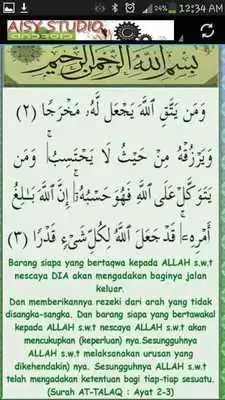 12:34 AM
AISY STUDIO
ANDROID
بسم الله الرحمن الرحيم
وَمَن يَتَّقِ ٱللَّهَ يَجْعَل لَّهُۥ مَخْرَجًا (٢)
وَيَرْزُقْهُ مِنْ حَيْثُ لَا يَحْتَسِبُ ۚ وَمَن
يَتَوَكَّلْ عَلَى ٱللَّهِ فَهُوَ حَسْبُهُۥٓ ۚ إِنَّ ٱللَّهَ بَـٰلِغُ
أَمْرِهِۦ ۚ قَدْ جَعَلَ ٱللَّهُ لِكُلِّ شَىْءٍ قَدْرًا (٣)
Barang siapa yang bertaqwa kepada ALLAH s.w.t
nescaya DIA akan mengadakan baginya jalan
keluar.
Dan memberikannya rezeki dari arah yang tidak
disangka-sangka. Dan barang siapa yang bertawakal
kepada ALLAH s.w.t nescaya ALLAH s.w.t akan
mencukupkan (keperluan) nya.Sesungguhnya
ALLAH s.w.t melaksanakan urusan yang
dikehendakin) nya. Sesungguhnya ALLAH s.w.t
telah mengadakan ketentuan bagi tiap-tiap sesuatu.
(Surah AT-TALAQ : Ayat 2-3)